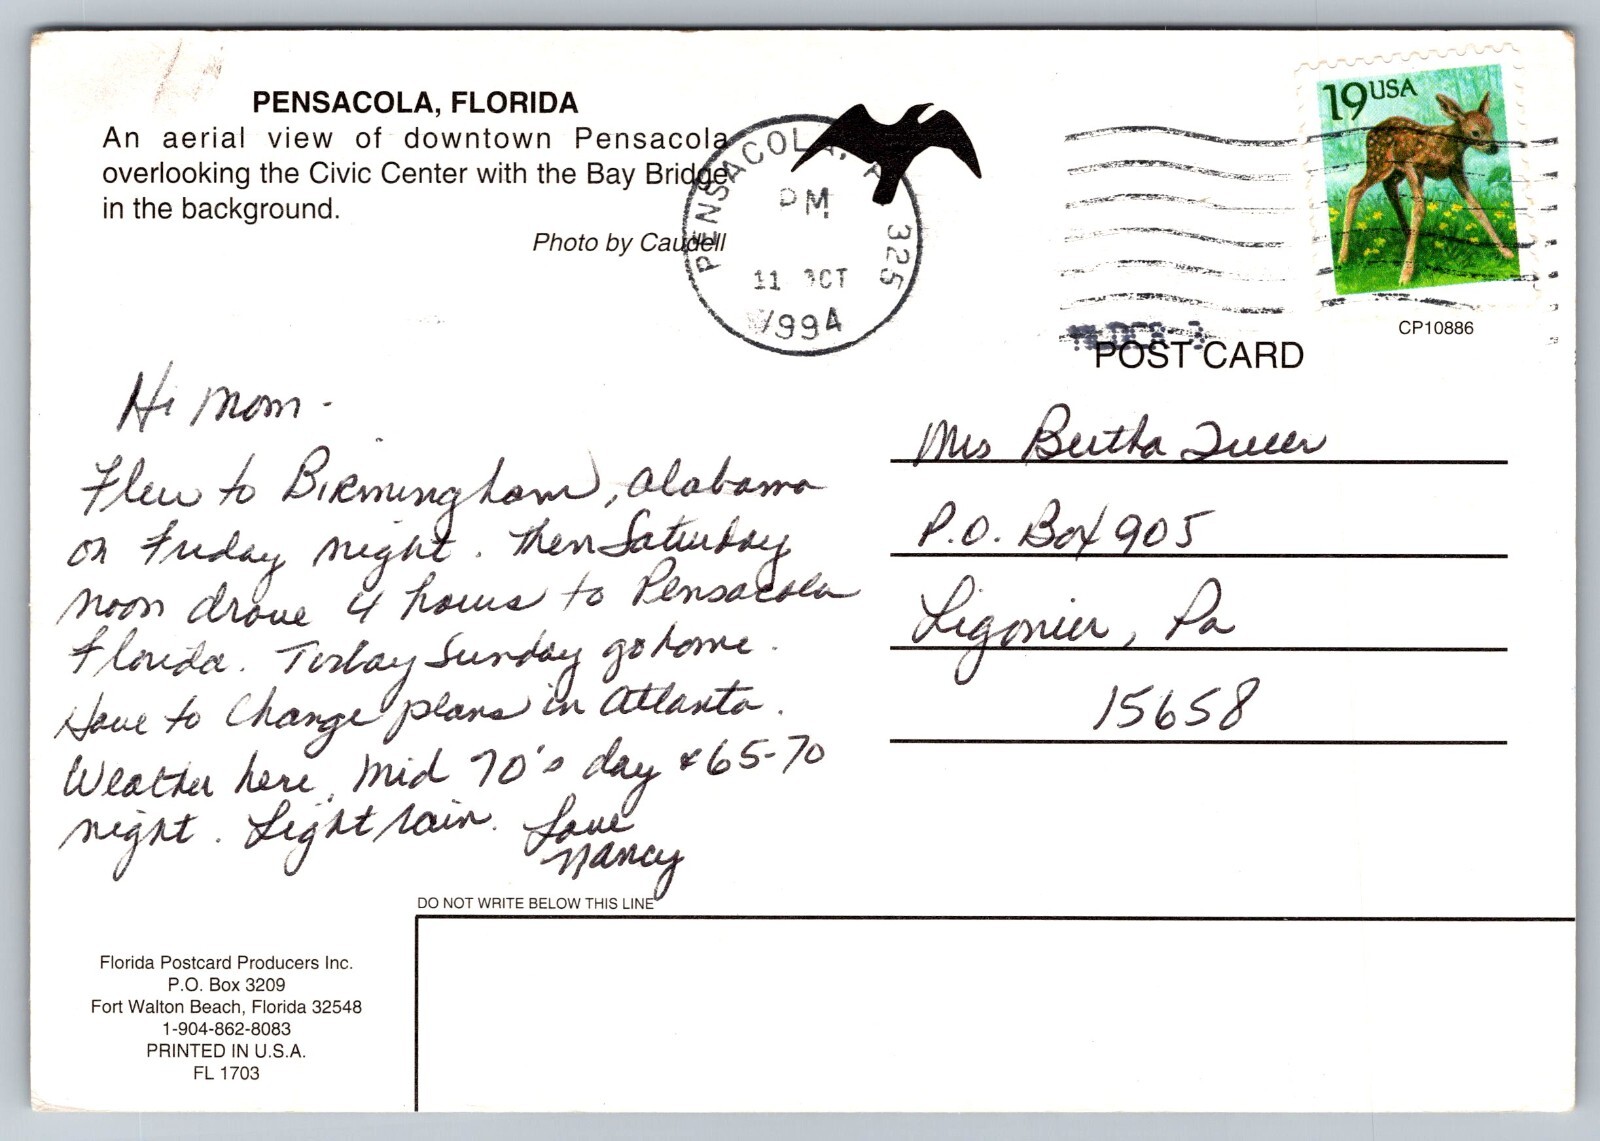 PENSACOLA, FLORIDA
An aerial view of downtown Pensacola
overlooking the Civic Center with the Bay Bridge
in the background.
Photo by Caudell
PENSACOLA, 325
PM
11 OCT
1994
19 USA
CP10886
POST CARD
Hi Mom -
Flew to Birmingham, Alabama
on Friday night. Then Saturday
noon drove 4 hours to Pensacola
Florida. Today Sunday go home.
Have to Change plans in Atlanta.
Weather here, Mid 70's day & 65-70
night. Light rain. Love
Nancy
Mrs Bertha
P.O. Box 905
Ligonier, Pa
15658
DO NOT WRITE BELOW THIS LINE
Florida Postcard Producers Inc.
P.O. Box 3209
Fort Walton Beach, Florida 32548
1-904-862-8083
PRINTED IN U.S.A.
FL 1703